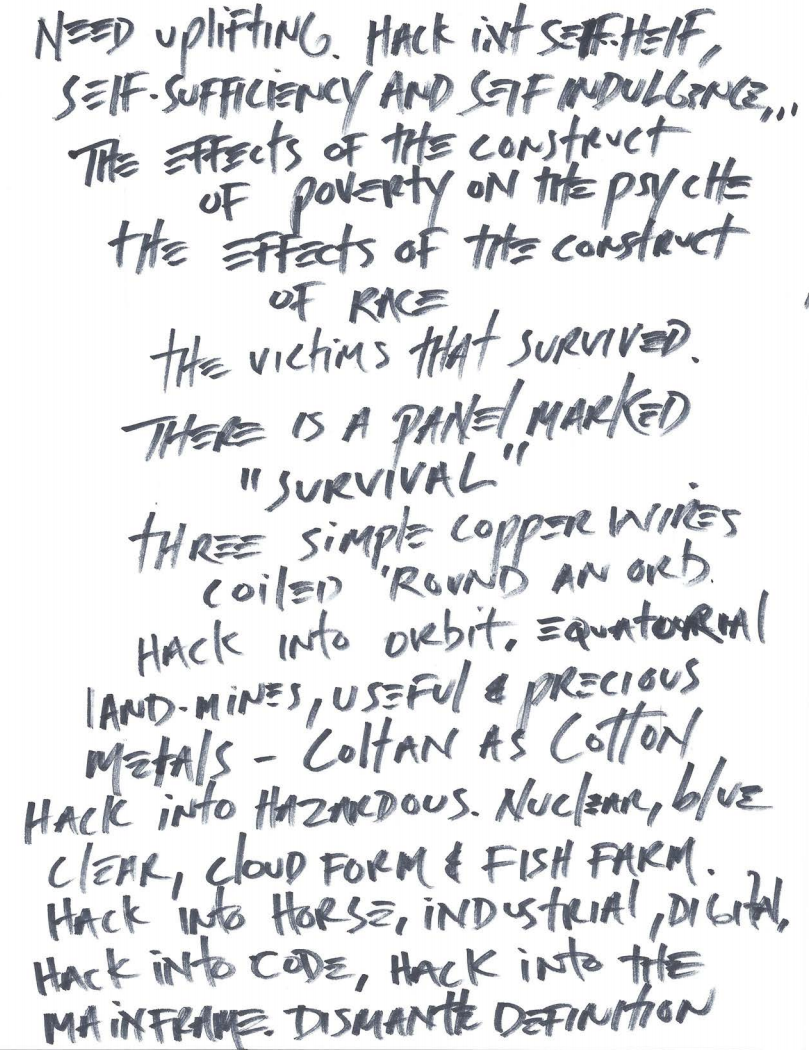 NEED uplifting. HACK into SELF-HELF,
SELF-SUFFICIENCY AND SELF INDULGENCE...
THE EFFECTS OF THE CONSTRUCT
OF POVERTY ON THE PSYCHE
THE EFFECTS OF THE CONSTRUCT
OF RACE
THE VICTIMS THAT SURVIVED.
THERE IS A PANEL MARKED
"SURVIVAL"
THREE SIMPLE COPPER WIRES
COILED 'ROUND AN ORB.
HACK INTO ORBIT, EQUATOURIAL
LAND-MINES, USEFUL & PRECIOUS
METALS - COLTAN AS COTTON
HACK INTO HAZARDOUS. NUCLEAR, BLUE
CLEAR, CLOUD FORM & FISH FARM.
HACK INTO HORSE, INDUSTRIAL, DIGITAL,
HACK INTO CODE, HACK INTO THE
MAINFRAME. DISMANTLE DEFINITION